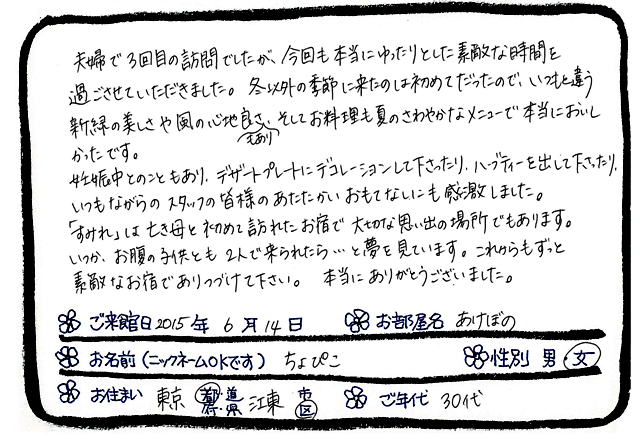 夫婦で3回目の訪問でしたが、今回も本当にゆったりとした素敵な時間を
過ごさせていただきました。冬以外の季節に来たのは初めてだったので、いつもと違う
新緑の美しさや風の心地良さもあり、そしてお料理も夏のさわやかなメニューで本当においし
かったです。
妊娠中とのこともあり、デザートプレートにデコレーションして下さったり、ハーブティーを出して下さったり、
いつもながらのスタッフの皆様のあたたかいおもてなしにも感激しました。
「すみれ」は亡き母と初めて訪れたお宿で大切な思い出の場所でもあります。
いつか、お腹の子供とも2人で来られたら…と夢を見ています。これからもずっと
素敵なお宿でありつづけて下さい。 本当にありがとうございました。
ご来館日 2015年 6月 14日 お部屋名 あけぼの
お名前(ニックネームOKです) ちょぴこ 性別 男・女
お住まい 東京 都・道・府・県 江東 市・区 ご年代 30代